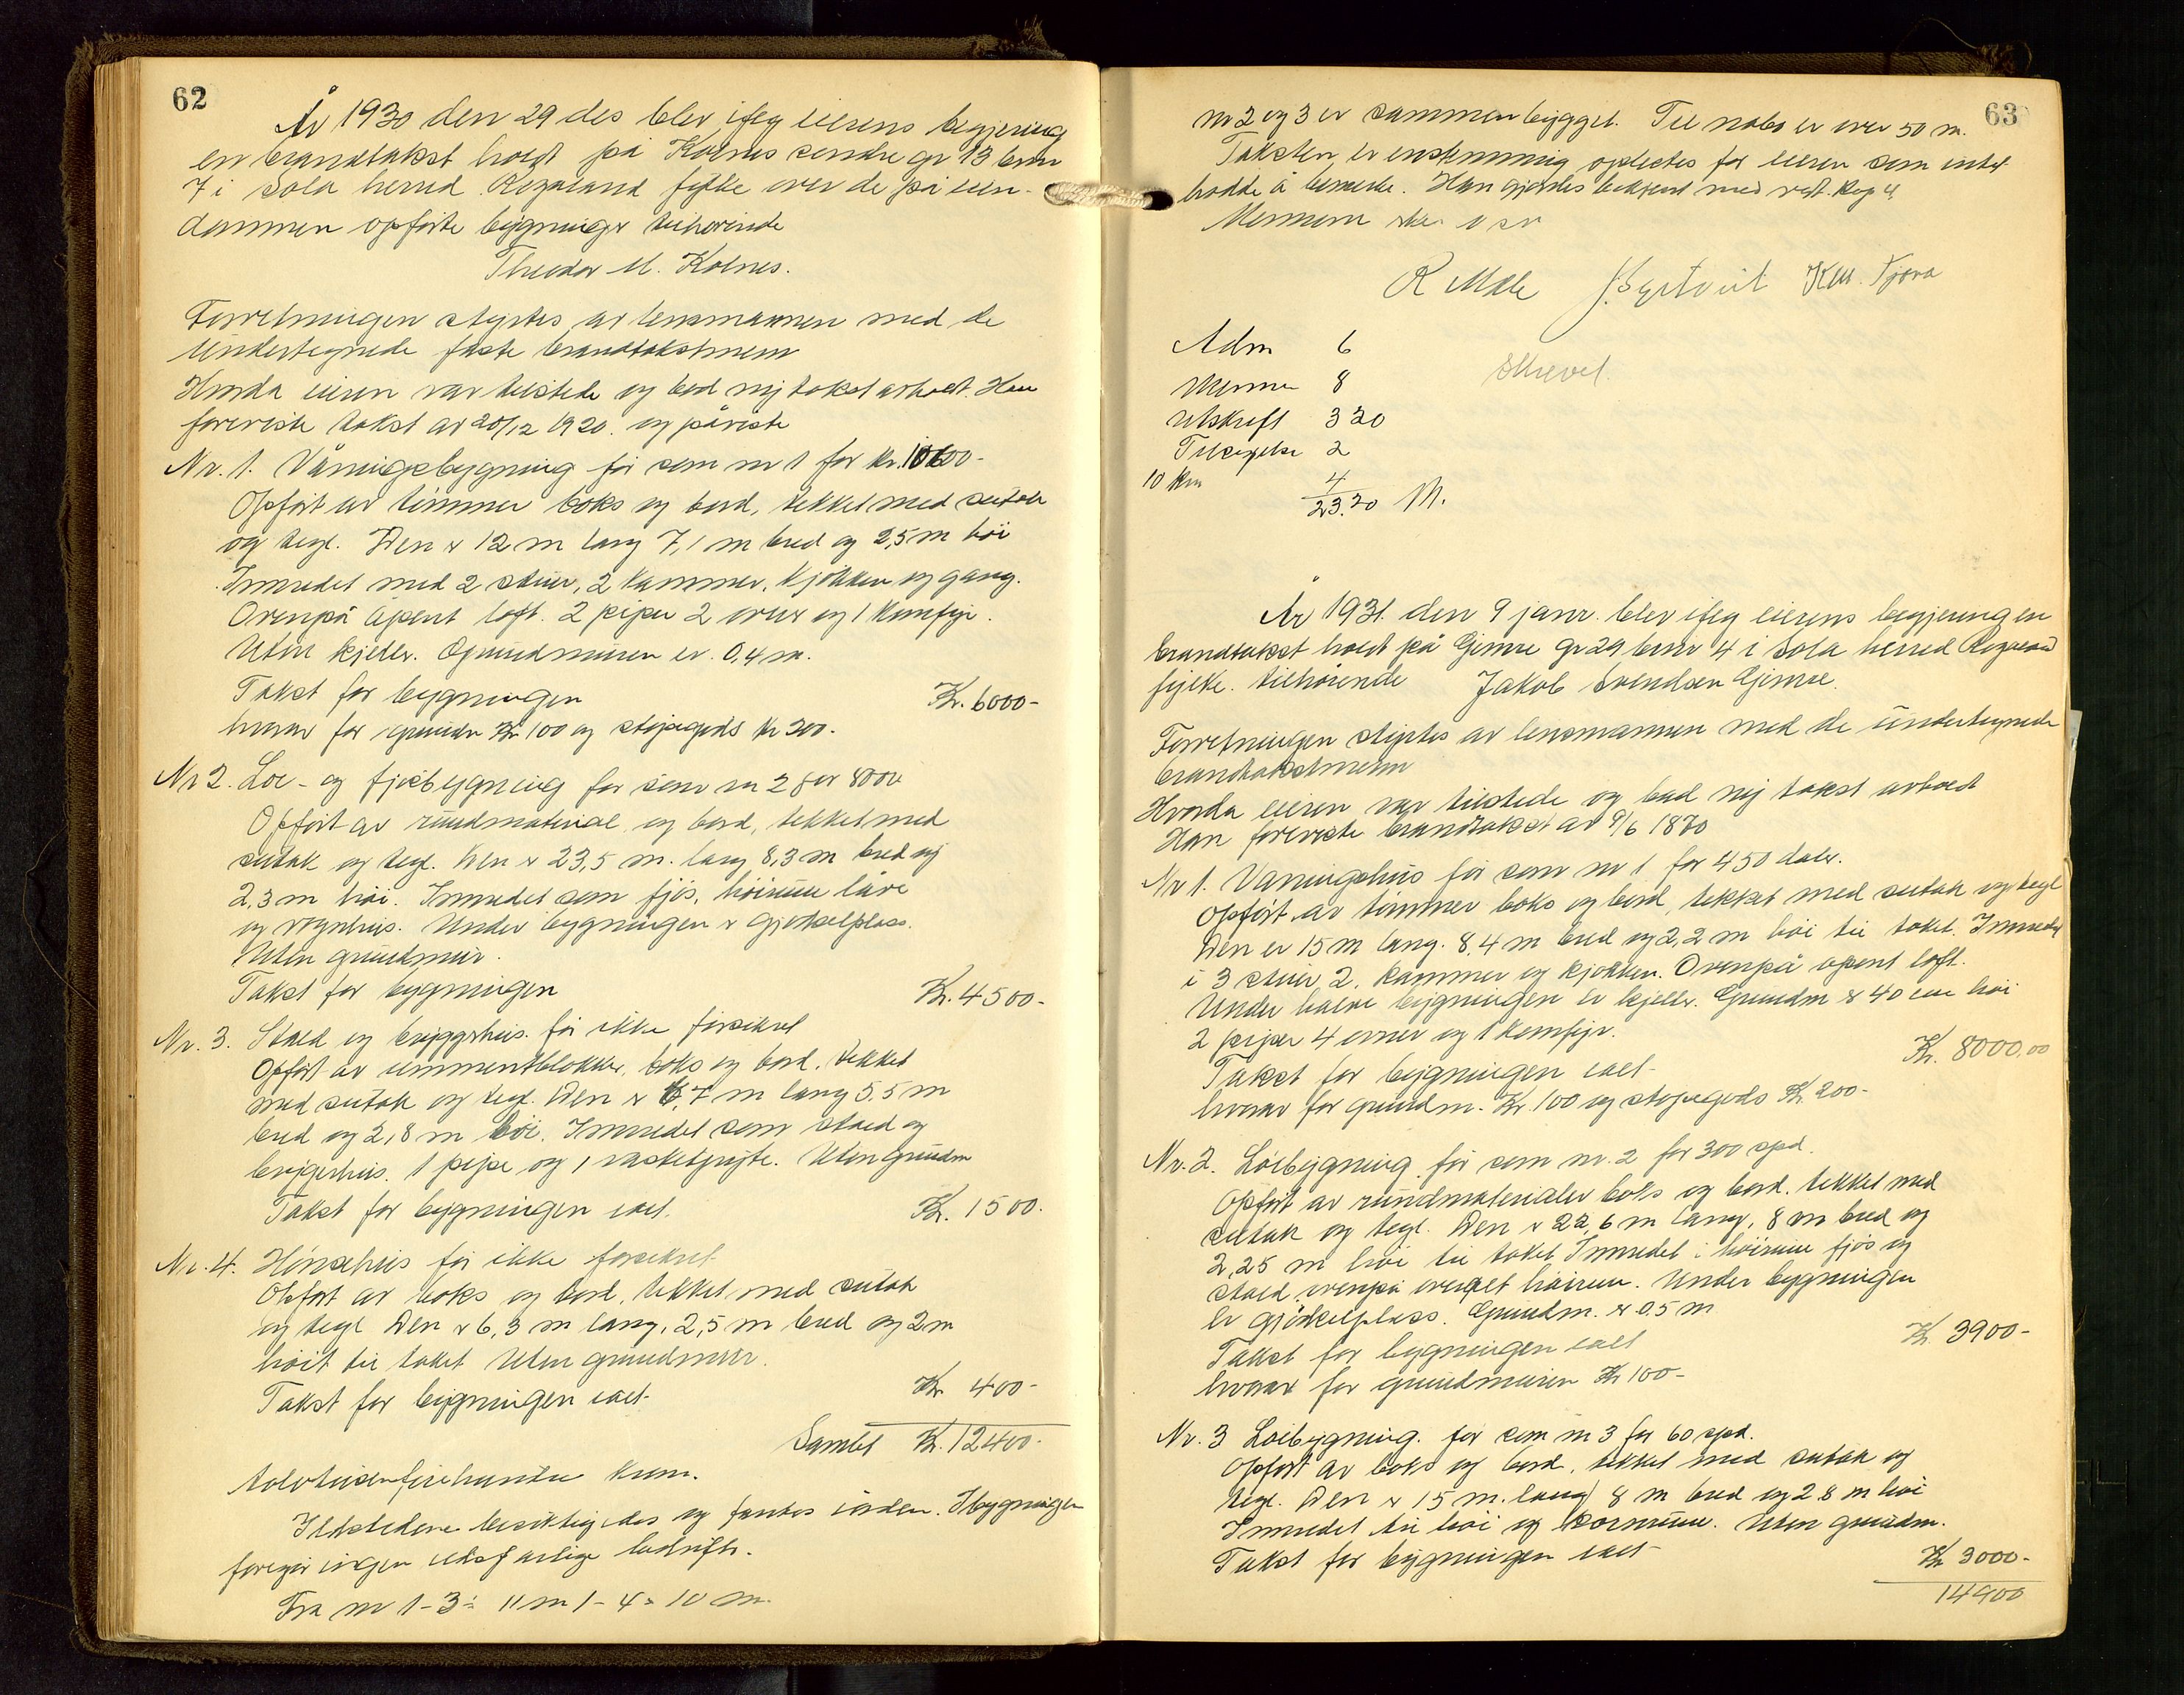 62
År 1930 den 29 des blev ifølg eierens begjæring
en brandtakst holdt på Kolnes søndre gr 13 brnr
7 i Sola herred Rogaland fylke over de på eien-
dommen opførte bygninger tilhørende
Theodor M. Kolnes.
Forretningen styrtes av lensmannen med de
undertegnede faste brandtakstmenn
Hvorda eieren var tilstede og bad ny takst avholdt. Han
foreviste takst av 20/12 1920. og påviste
Nr. 1. Våningsbygning før som nr 1 for kr. 10600-
Opført av tømmer boks og bord, tekket med sutak
og tegl. Den er 12 m lang 7,1 m bred og 2,5 m høi
Innredet med 2 stuer, 2 kammer, kjøkken og gang.
Ovenpå åpent loft. 2 piper 2 ovner og 1 komfyr.
Uten kjeller. Grundmuren er 0,4 m.
Takst for bygningen Kr. 6000-
hvorav for grundm Kr 100 og støpegods kr 200.
Nr 2. Løe- og fjøsbygning før som nr 2 for 8000
Opført av rundmaterial og bord, tekket med
sutak og tegl. Den er 23,5 m. lang 8,3 m bred og
2,3 m høi. Innredet som fjøs, høirum låve
og vognhus. Under bygningen er gjødselplass.
Uten grundmur.
Takst for bygningen Kr. 4500-
Nr. 3. Stald og bryggerhus. før ikke forsikret
Opført av cementblokker, boks og bord. tekket
med sutak og tegl. Den er 6,7 m lang 5,5 m
bred og 2,8 m høi. Innredet som stald og
bryggerhus. 1 pipe og 1 vaskegryte. Uten grundm
Takst for bygningen ialt. Kr. 1500.
Nr. 4. Hønsehus før ikke forsikret
Opført av boks og bord, tekket med sutak
og tegl Den er 6,3 m lang, 2,5 m bred og 2 m
høit til taket Uten grundmur.
Takst for bygningen ialt Kr 400-
Samlet Kr. 12400-
tolvtusenfirehundre kron.
Ildstedene besiktigedes og fantes iorden. I bygningen
foregår ingen ildsfarlige bedrifter.
Fra nr 1-3 = 11 m 1-4 = 10 m.
63
nr 2 og 3 er sammenbygget. Til nabo er over 50 m.
Taksten er enstemmig oplestes for eieren som intet
hadde å bemerke. Han gjordes bekjent med vedt. kap 4
Mennene
Adm 6
Menn 8
Utskrift 3 20
Tilsigelse 2
10 km 4
23.20 M.
Skrevet.
År 1931. den 9 janr. blev ifølg eierens begjering en
brandtakst holdt på Gimre gr 29 brnr 4 i Sola herred Rogaland
fylke. tilhørende Jakob Svendsen Gimre.
Forretningen styrtes av lensmannen med de undertegnede
brandtakstmenn
Hvorda eieren var tilstede og bad ny takst avholdt
Han foreviste brandtakst av 9/6 1870
Nr 1. Vaningshus før som nr 1 for 450 daler.
Opført av tømmer boks og bord, tekket med sutak og tegl
Den er 15 m lang. 8,4 m bred og 2,2 m høi til taket. Innredet
i 3 stuer, 2. kammer og kjøkken. Ovenpå opent loft.
Under halve bygningen er kjeller. Grundm er 40 cm høi
2 piper 4 ovner og 1 komfyr.
Takst for bygningen ialt Kr. 8000,00
hvorav for grundm. Kr. 100 og støpegods Kr. 200-
Nr. 2. Løebygning før som nr. 2 for 300 spd.
Opført av rundmaterialer boks og bord. tekket med
sutak og tegl. Den er 22,6 m lang, 8 m bred og
2,25 m høi til taket Innredet i høirum fjøs og
stald ovenpå overalt høirum. Under bygningen
er gjødselplass. Grundm. er 0,5 m
Takst for bygningen ialt Kr. 3900-
hvorav for grundmuren Kr 100-
Nr. 3 Løebygning. før som nr 3 for 60 spd.
Opført av boks og bord, tekket med sutak og
tegl. Den er 15 m. lang 8 m bred og 2.8 m høi
Innredet til høi og kornrum. Uten grundm.
Takst for bygningen ialt Kr 3000-
14900